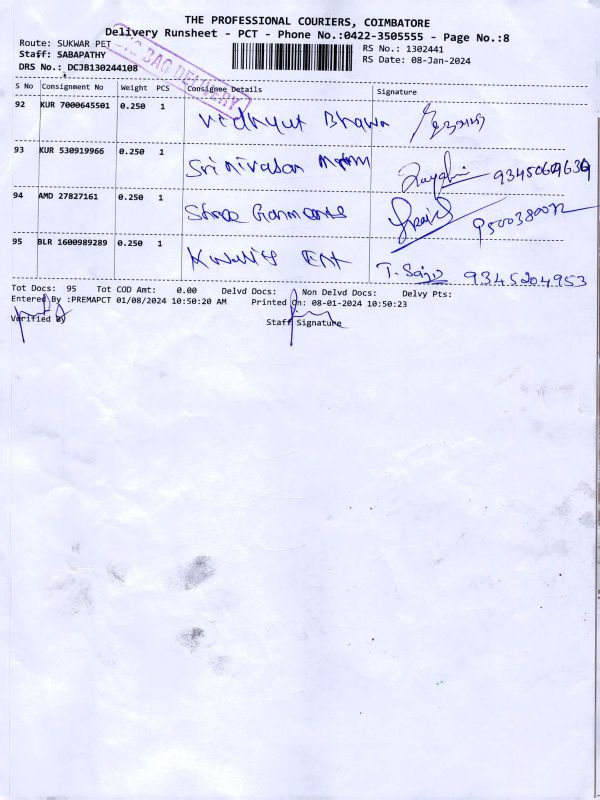 THE PROFESSIONAL COURIERS, COIMBATORE
Delivery Runsheet - PCT - Phone No.:0422-3505555 - Page No.:8
Route: SUKWAR PET
RS No.: 1302441
Staff: SABAPATHY
RS Date: 08-Jan-2024
DRS No.: DCJB130244108
BAG DELIVERY
S No Consignment No Weight PCS Consignee Details Signature
92 KUR 7000645501 0.250 1 Vidhyut Bhawn
93 KUR 530919966 0.250 1 Srinivasan
94 AMD 27827161 0.250 1 Shree Garments 9500380072
95 BLR 1600989289 0.250 1 Ent T. 9345204953
Tot Docs: 95 Tot COD Amt: 0.00 Delvd Docs: Non Delvd Docs: Delvy Pts:
Entered By :PREMAPCT 01/08/2024 10:50:20 AM Printed On: 08-01-2024 10:50:23
Verified By Staff Signature